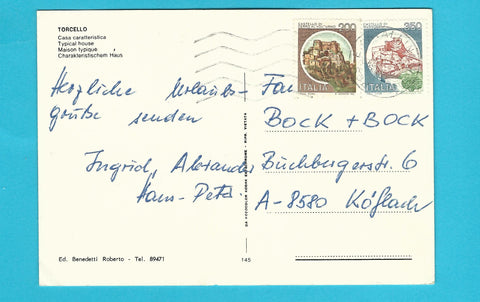 TORCELLO
Casa caratteristica
Typical house
Maison typique
Charakteristischem Haus
Herzliche Urlaubs-
grüße senden
Ingrid, Alexander
Hans-Peter
Ed. Benedetti Roberto - Tel. 89471
145
200
ITALIA
350
ITALIA
Fam.
BOCK + BOCK
Büchbergerstr. 6
A-8580 Köflach